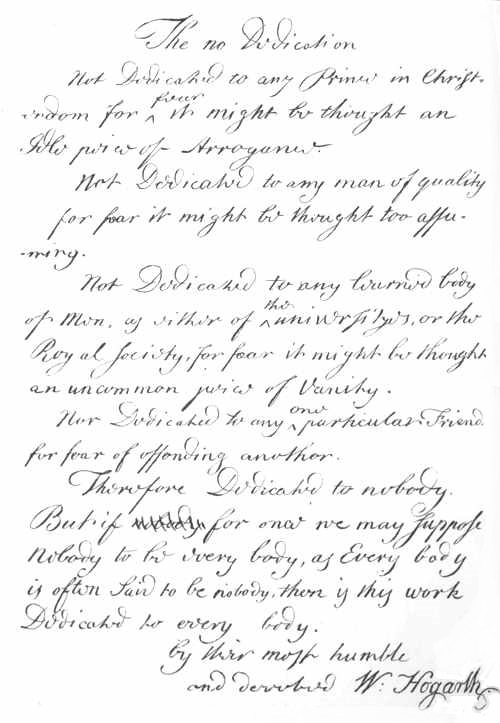 The no Dedication
Not Dedicated to any Prince in Christ-
endom for fear it might be thought an
Idle peice of Arrogance.
Not Dedicated to any man of quality
for fear it might be thought too assu-
-ming.
Not Dedicated to any learned body
of Men, as either of the universityes, or the
Royal Society, for fear it might be thought
an uncommon peice of Vanity.
Nor Dedicated to any one particular Friend
for fear of offending another.
Therefore Dedicated to nobody.
But if for once we may suppose
Nobody to be every body, as Every body
is often said to be nobody, then is this work
Dedicated to every body.
by their most humble
and devoted W: Hogarth